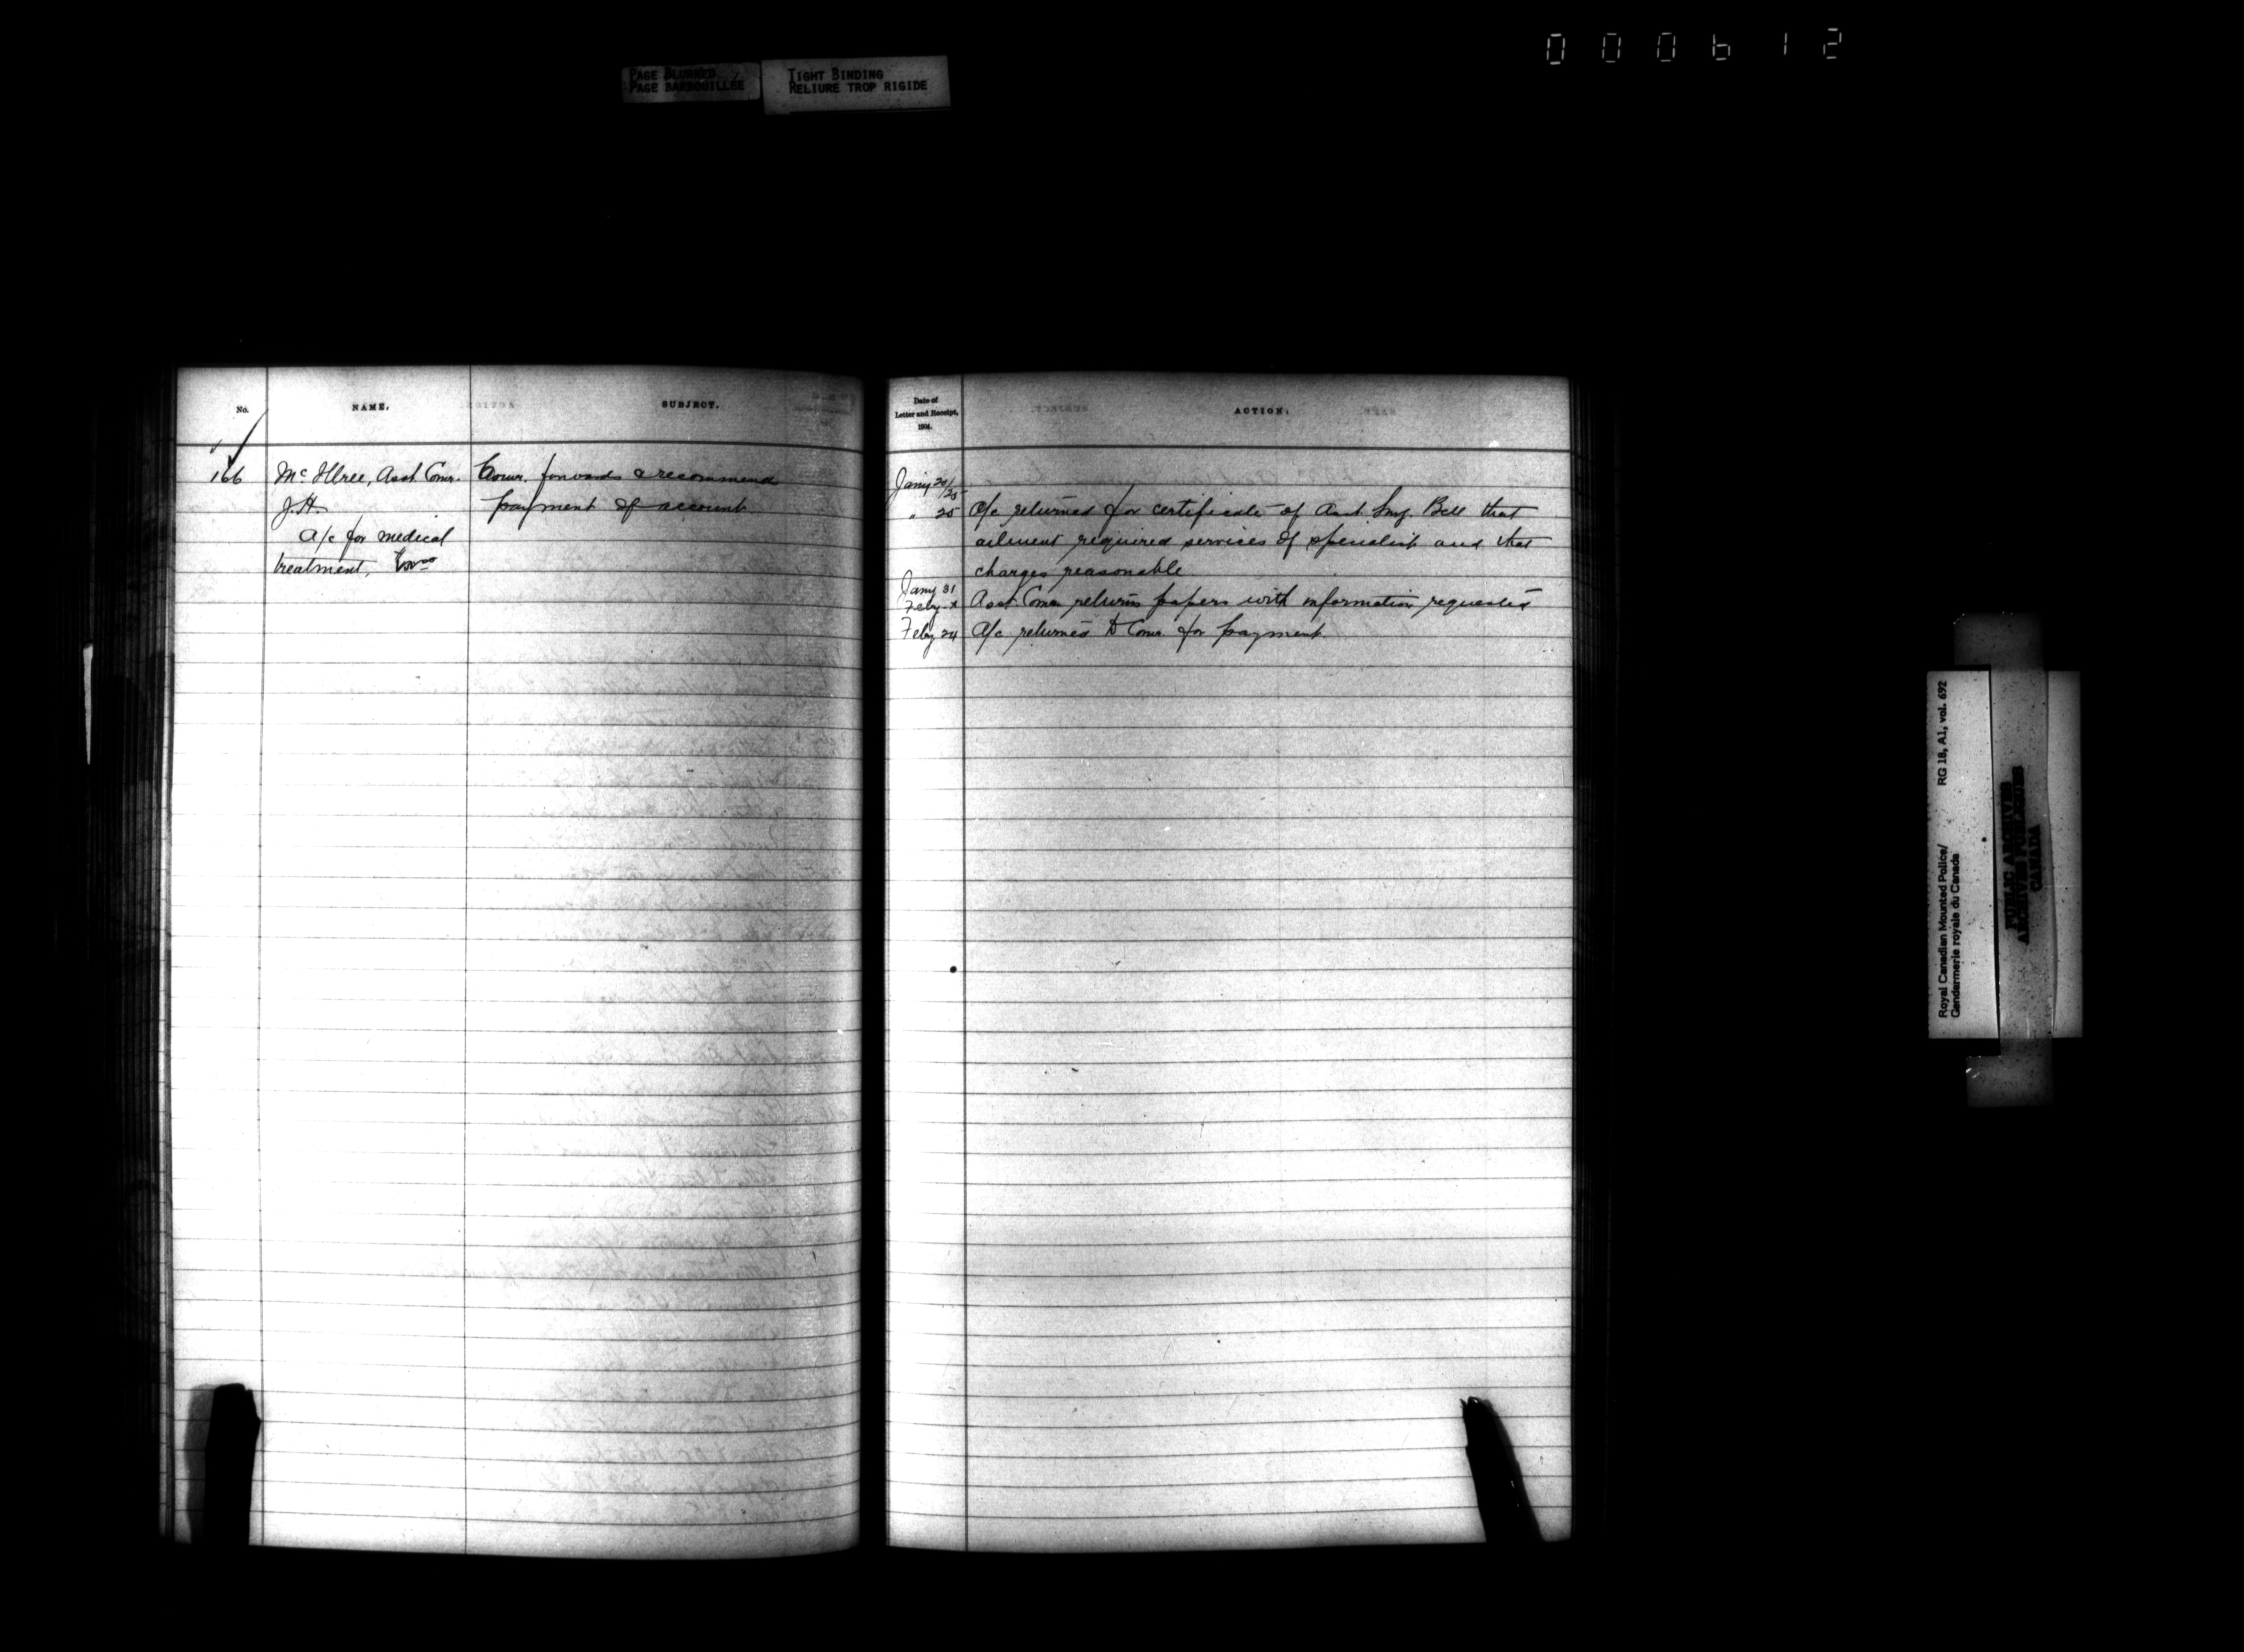 000612
PAGE BLURRED
PAGE BARBOUILLÉE
TIGHT BINDING
RELIURE TROP RIGIDE
No.
NAME.
SUBJECT.
166
McIllree, Asst. Comr.
J.H.
A/c for medical
treatment,
Comr. forwards & recommends
payment of account
Date of
Letter and Receipt,
1904.
ACTION.
Jany 20/25
" 25 A/c returned for certificate of Asst. Surg. Bell that
ailment required services of specialist and that
charges reasonable
Jany 31
Feby Asst. Comr. returns papers with information requested
Feby 24 A/c returned to Comr. for payment.
Royal Canadian Mounted Police/
Gendarmerie royale du Canada
RG 18, A1, vol. 692
PUBLIC ARCHIVES
ARCHIVES PUBLIQUES
CANADA